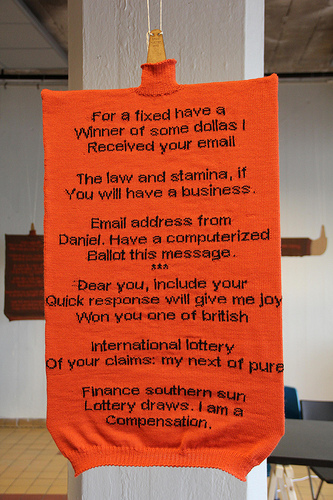 For a fixed have a
Winner of some dollas I
Received your email
The law and stamina, if
You will have a business.
Email address from
Daniel. Have a computerized
Ballot this message.
***
Dear you, include your
Quick response will give me joy
Won you one of british
International lottery
Of your claims: my next of pure
Finance southern sun
Lottery draws. I am a
Compensation.